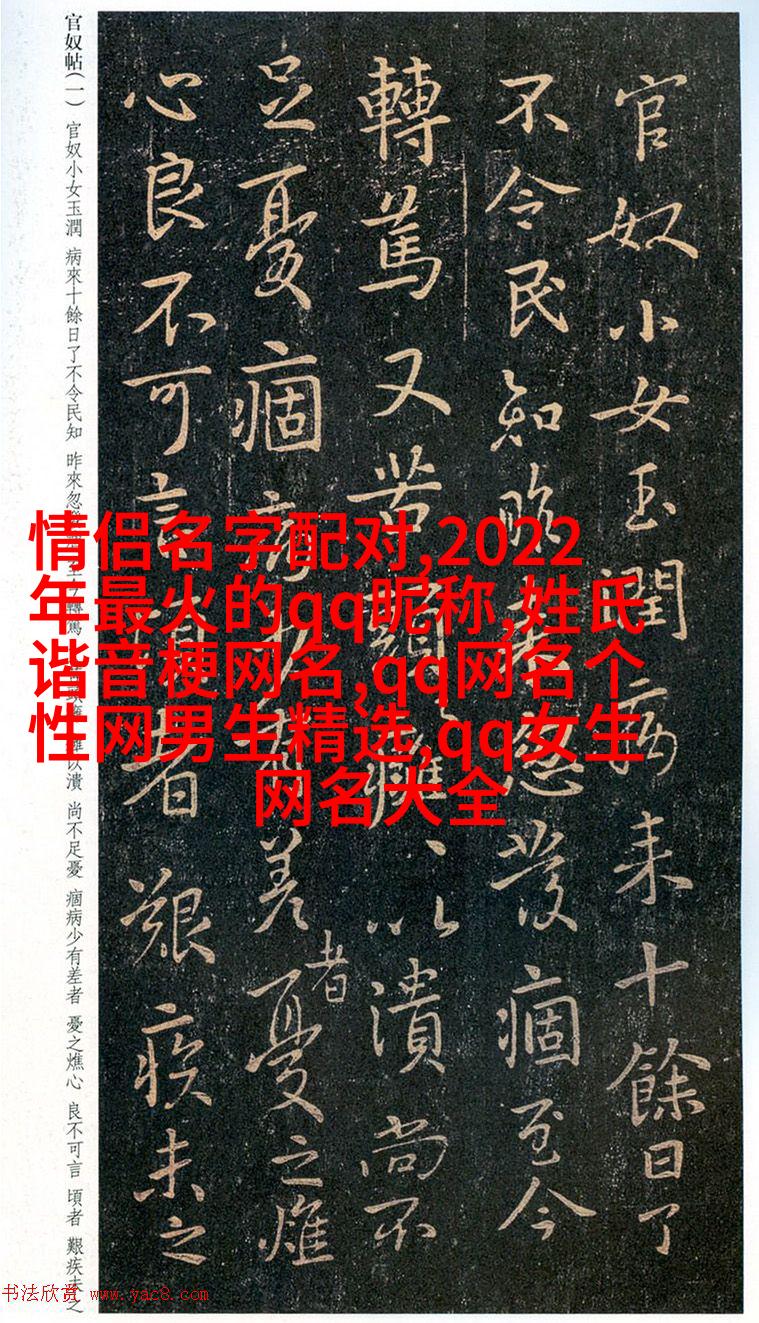 官奴小女玉潤病来十餘日了
不令民知昨来忽發痼至今
轉篤又苦頭癰、以潰尚不
足憂痼病少有差者憂之燋
心良不可言頃者艱疾未之
官奴帖(一) 官奴小女玉潤 病來十餘日了不令民知 昨來忽 轉篤 以潰 尚不足憂 痼病少有差者 憂之燋心 良不可言 頃者 艱疾未之
情侣名字配对,2022
年最火的qq昵称,姓氏
谐音梗网名,qq网名个
性网男生精选,qq女生
网名大全
书法欣赏 www.yac8.com